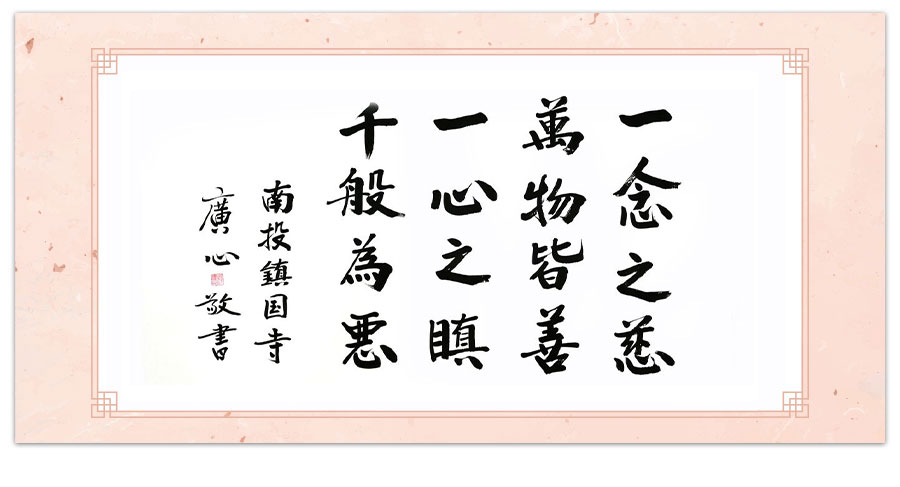 一念之慈
萬物皆善
一心之瞋
千般為惡
南投鎮国寺
廣心敬書